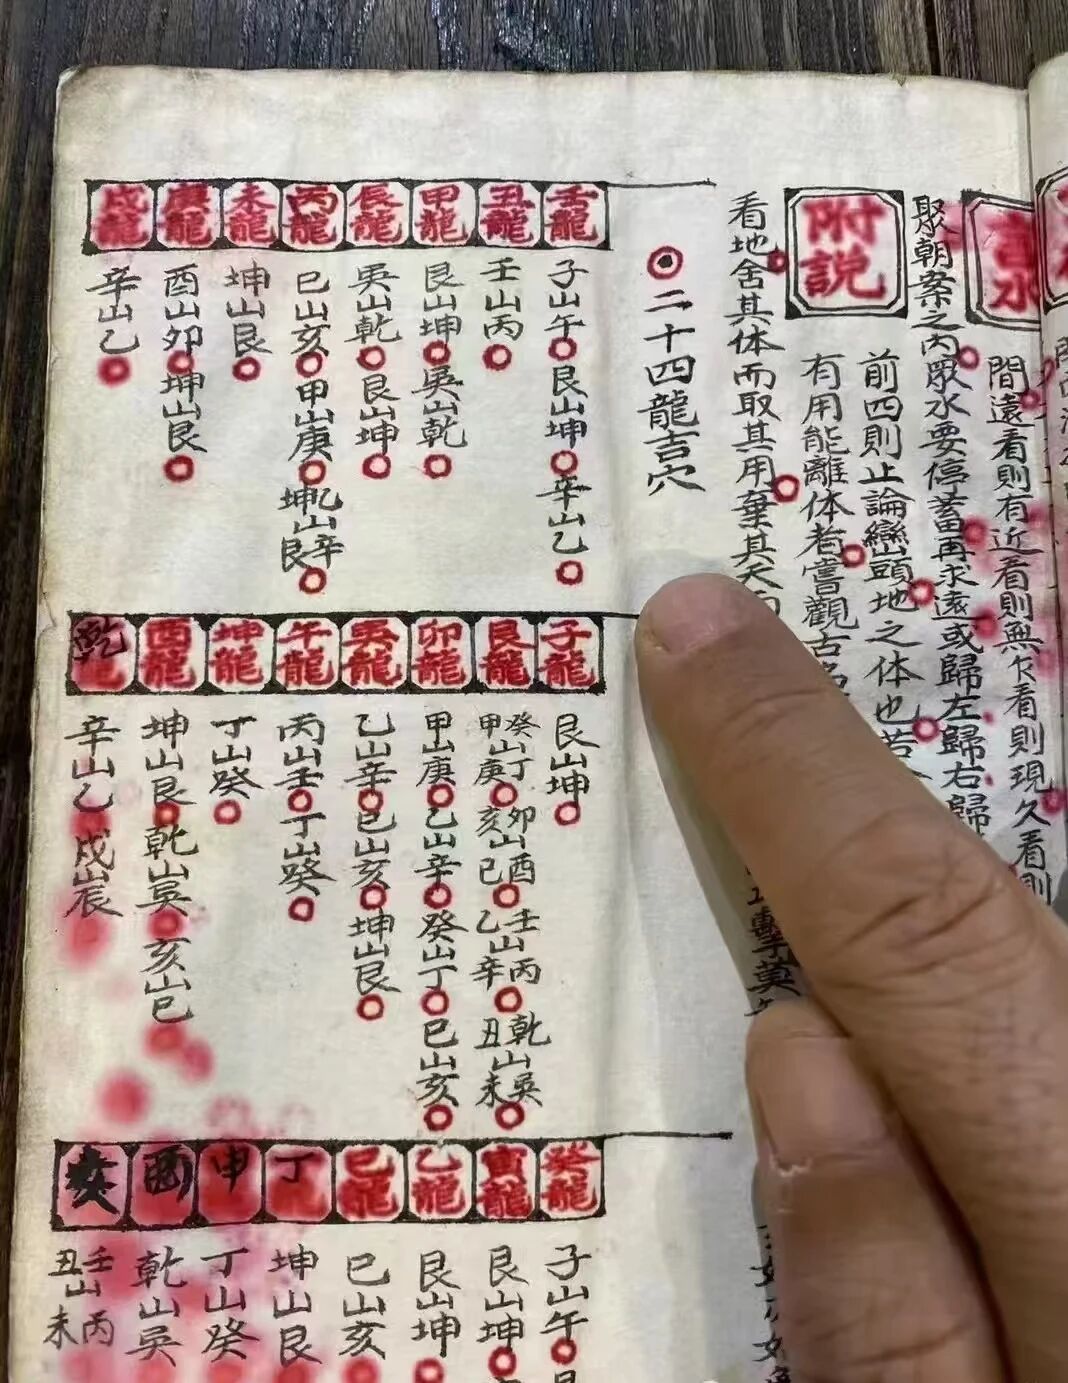 吉水
間遠看則有近看則無欠看則現久看則
聚朝案之内眾水要停蓄再求遠或歸左歸右歸
附説
前四則止論巒頭地之体也若
有用能離体者嘗觀古
看地舍其体而取其用棄其天
二十四龍吉穴
壬龍
子山午 艮山坤 辛山乙
丑龍
壬山丙
甲龍
艮山坤 吳山乾
辰龍
吳山乾 艮山坤
丙龍
巳山亥 甲山庚 乙山辛 坤山艮
未龍
坤山艮
庚龍
酉山卯 坤山艮
戌龍
辛山乙
子龍
艮山坤
艮龍
癸山丁 甲山庚 卯山酉 亥山巳 壬山丙 乙山辛 乾山吳 丑山未
卯龍
甲山庚 乙山辛 癸山丁 巳山亥
吳龍
乙山辛 巳山亥 坤山艮
午龍
丙山壬 丁山癸
坤龍
丁山癸
酉龍
坤山艮 乾山吳 亥山巳
乾龍
辛山乙 戍山辰
癸龍
子山午
寅龍
艮山坤
乙龍
艮山坤
巳龍
巳山亥
丁
坤山艮
申
丁山癸
酉
乾山吳
亥
壬山丙 丑山未